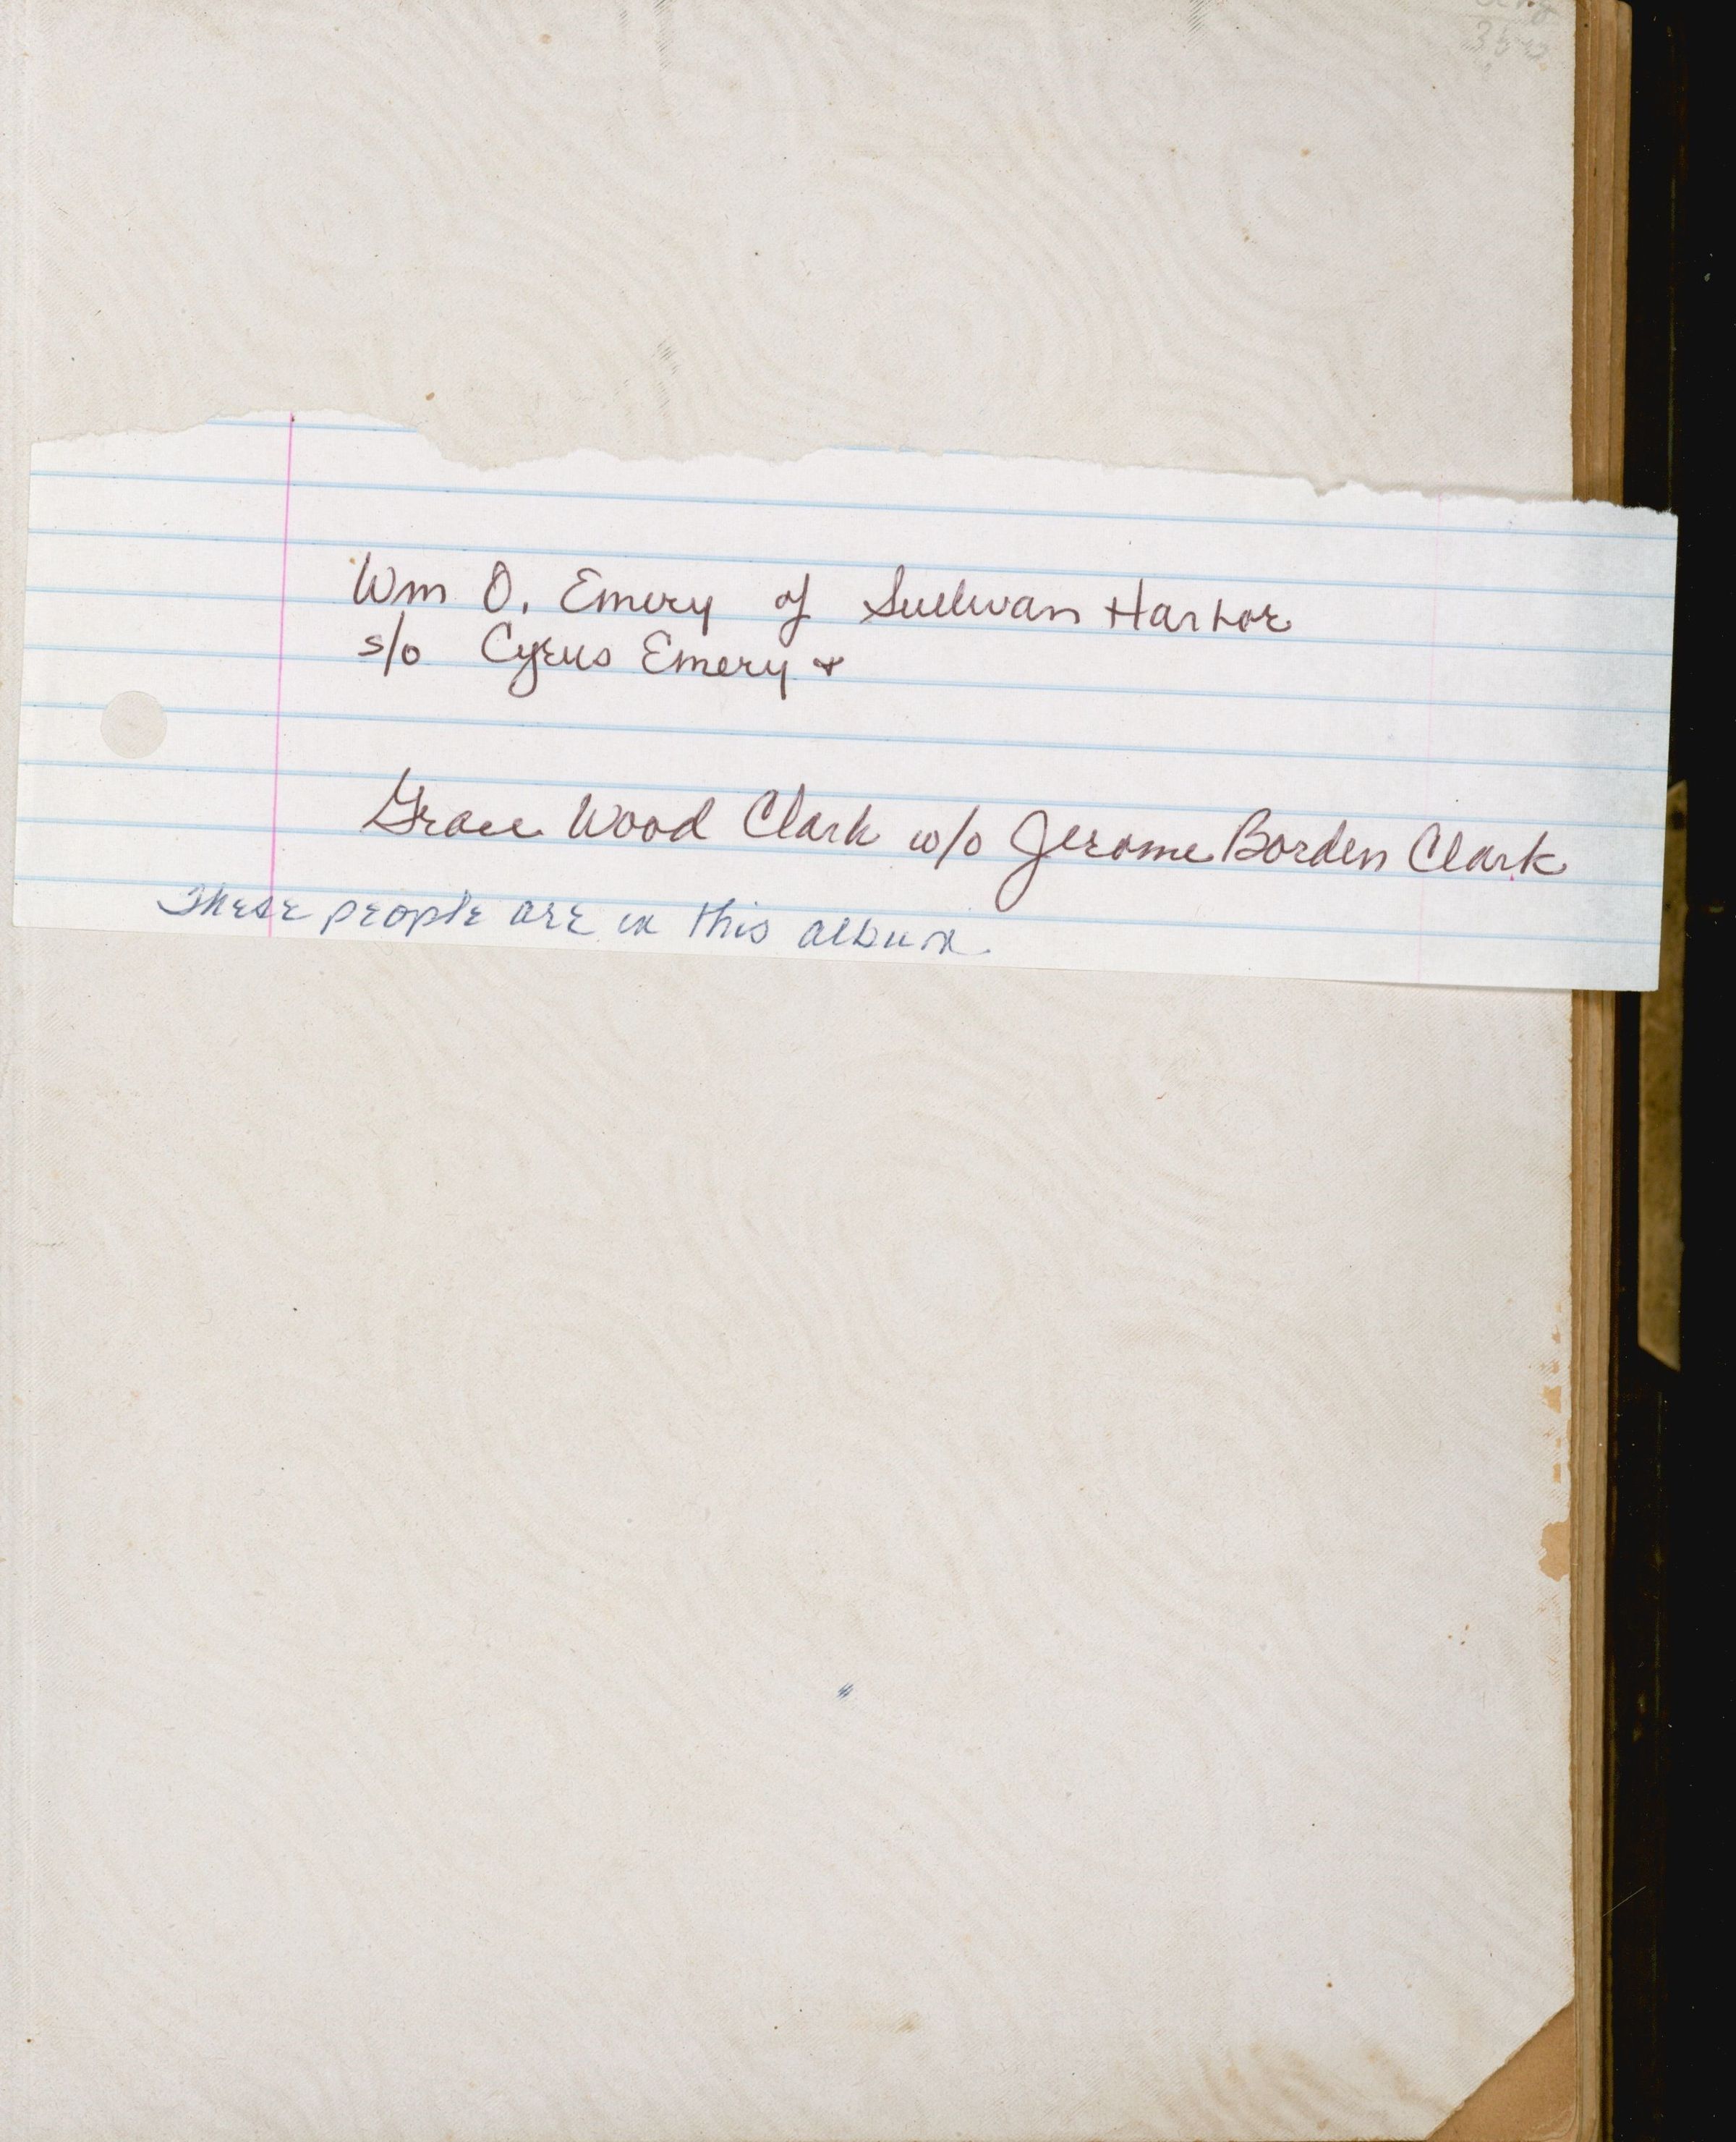 Wm O. Emery of Sullivan Harbor
s/o Cyrus Emery &
Grace Wood Clark w/o Jerome Borden Clark
These people are in this album